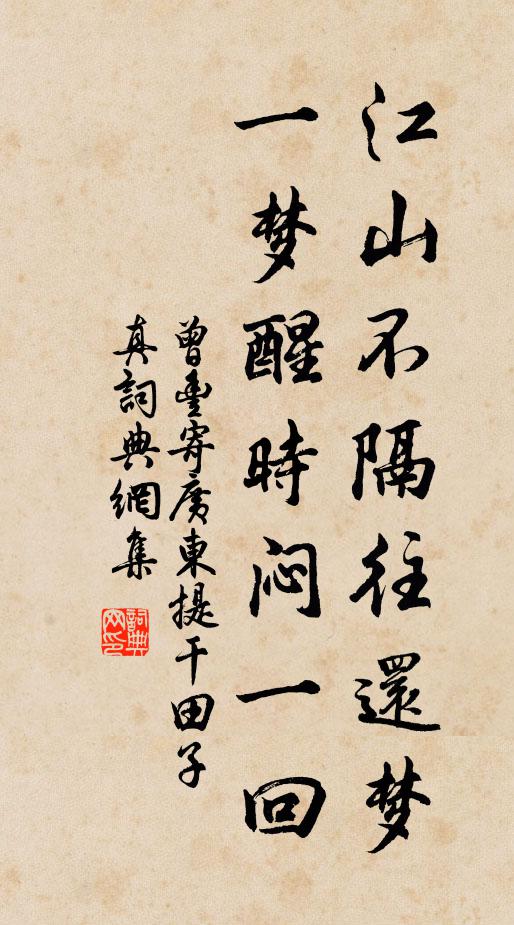 江山不隔往還梦
一梦醒時闷一回
曾豊寄廣東提干田子
真詞典網集
詞典网印